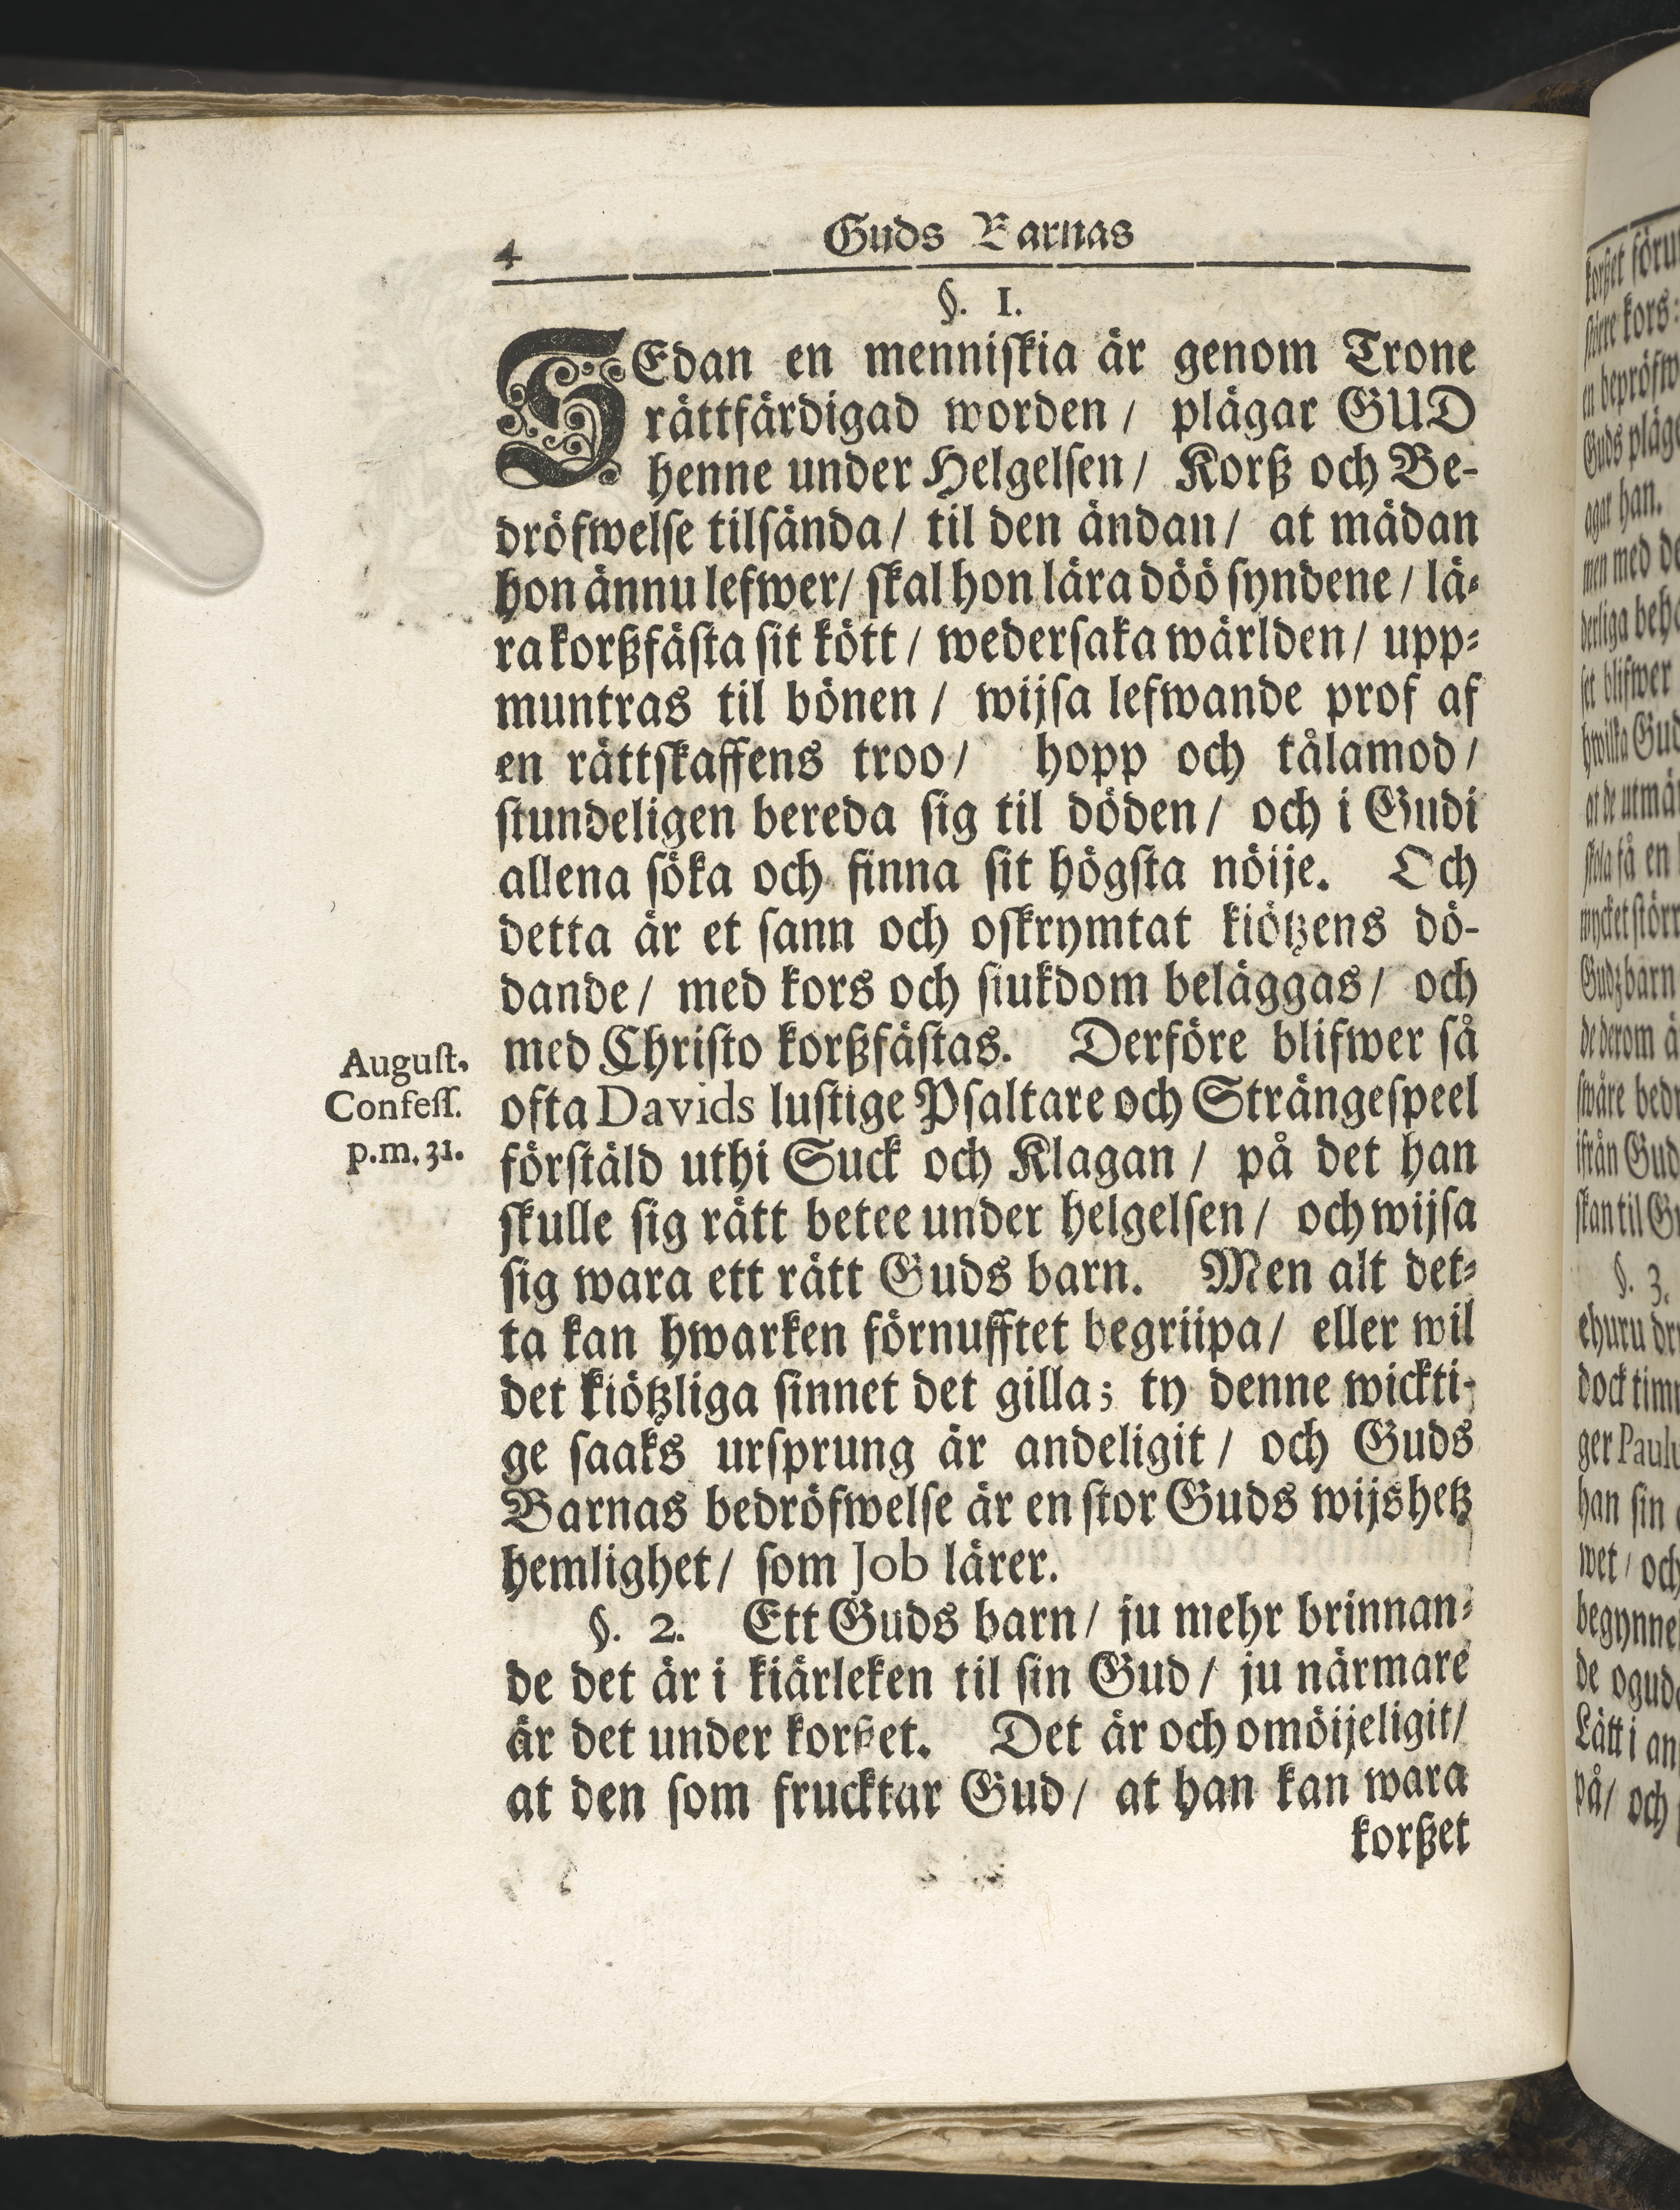 4 Guds Barnas
§. 1.
SEdan en menniſkia är genom Trone
rättfärdigad worden / plägar GUD
henne under Helgelſen / Korß och Be-
dröfwelſe tilſända / til den ändan / at mädan
hon ännu lefwer / ſkal hon lära döö ſyndene / lä-
ra korßfäſta ſit kött / wederſaka wärlden / upp-
muntras til bönen / wijſa lefwande prof af
en rättſkaffens troo / hopp och tålamod /
ſtundeligen bereda ſig til döden / och i Gudi
allena ſöka och finna ſit högſta nöije. Och
detta är et ſann och oſkrymtat kiötzens dö-
dande / med kors och ſiukdom beläggas / och
med Chriſto korßfäſtas. Derföre blifwer ſå
ofta Davids luſtige Pſaltare och Strängeſpeel
förſtäld uthi Suck och Klagan / på det han
ſkulle ſig rätt betee under helgelſen / och wijſa
ſig wara ett rätt Guds barn. Men alt det-
ta kan hwarken förnufftet begriipa / eller wil
det kiötzliga ſinnet det gilla; ty denne wickti-
ge ſaaks urſprung är andeligit / och Guds
Barnas bedröfwelſe är en ſtor Guds wijshetz
hemlighet / ſom Job lärer.
§. 2. Ett Guds barn / ju mehr brinnan-
de det är i kiärleken til ſin Gud / ju närmare
är det under korßet. Det är och omöijeligit /
at den ſom frucktar Gud / at han kan wara
korßet
Auguſt.
Confeſſ.
p.m. 31.
korßet förut
ſtörre kors:
en bepröfw
Guds pläg
agar han.
men med de
derliga beh
ſet blifwer
hwilka Gud
at de utmä
ſkola få en
mycket ſtörr
Gudz barn
de derom ä
ſwåre bedr
ifrån Gud
ſkan til Gu
§. 3.
ehuru dr
dock tim
ger Paulu
han ſin
wet / och
begynne
de ogud
Lätt i an
på / och